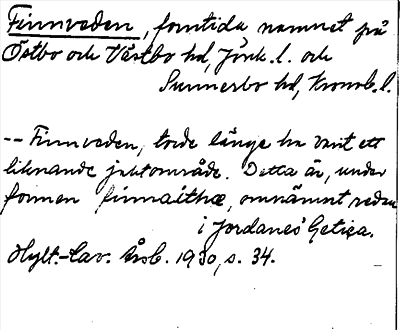 Finnveden, forntida namnet på
Östbo och Västbo hd, Jönk. l. och
Sunnerbo hd, Kronob. l.
-- Finnveden, torde länge ha varit ett
liknande jaktområde. Detta är, under
formen finnaithæ, omnämnt redan
i Jordanes' Getica.
Hylt.-Cav. årsb. 1930, s. 34.